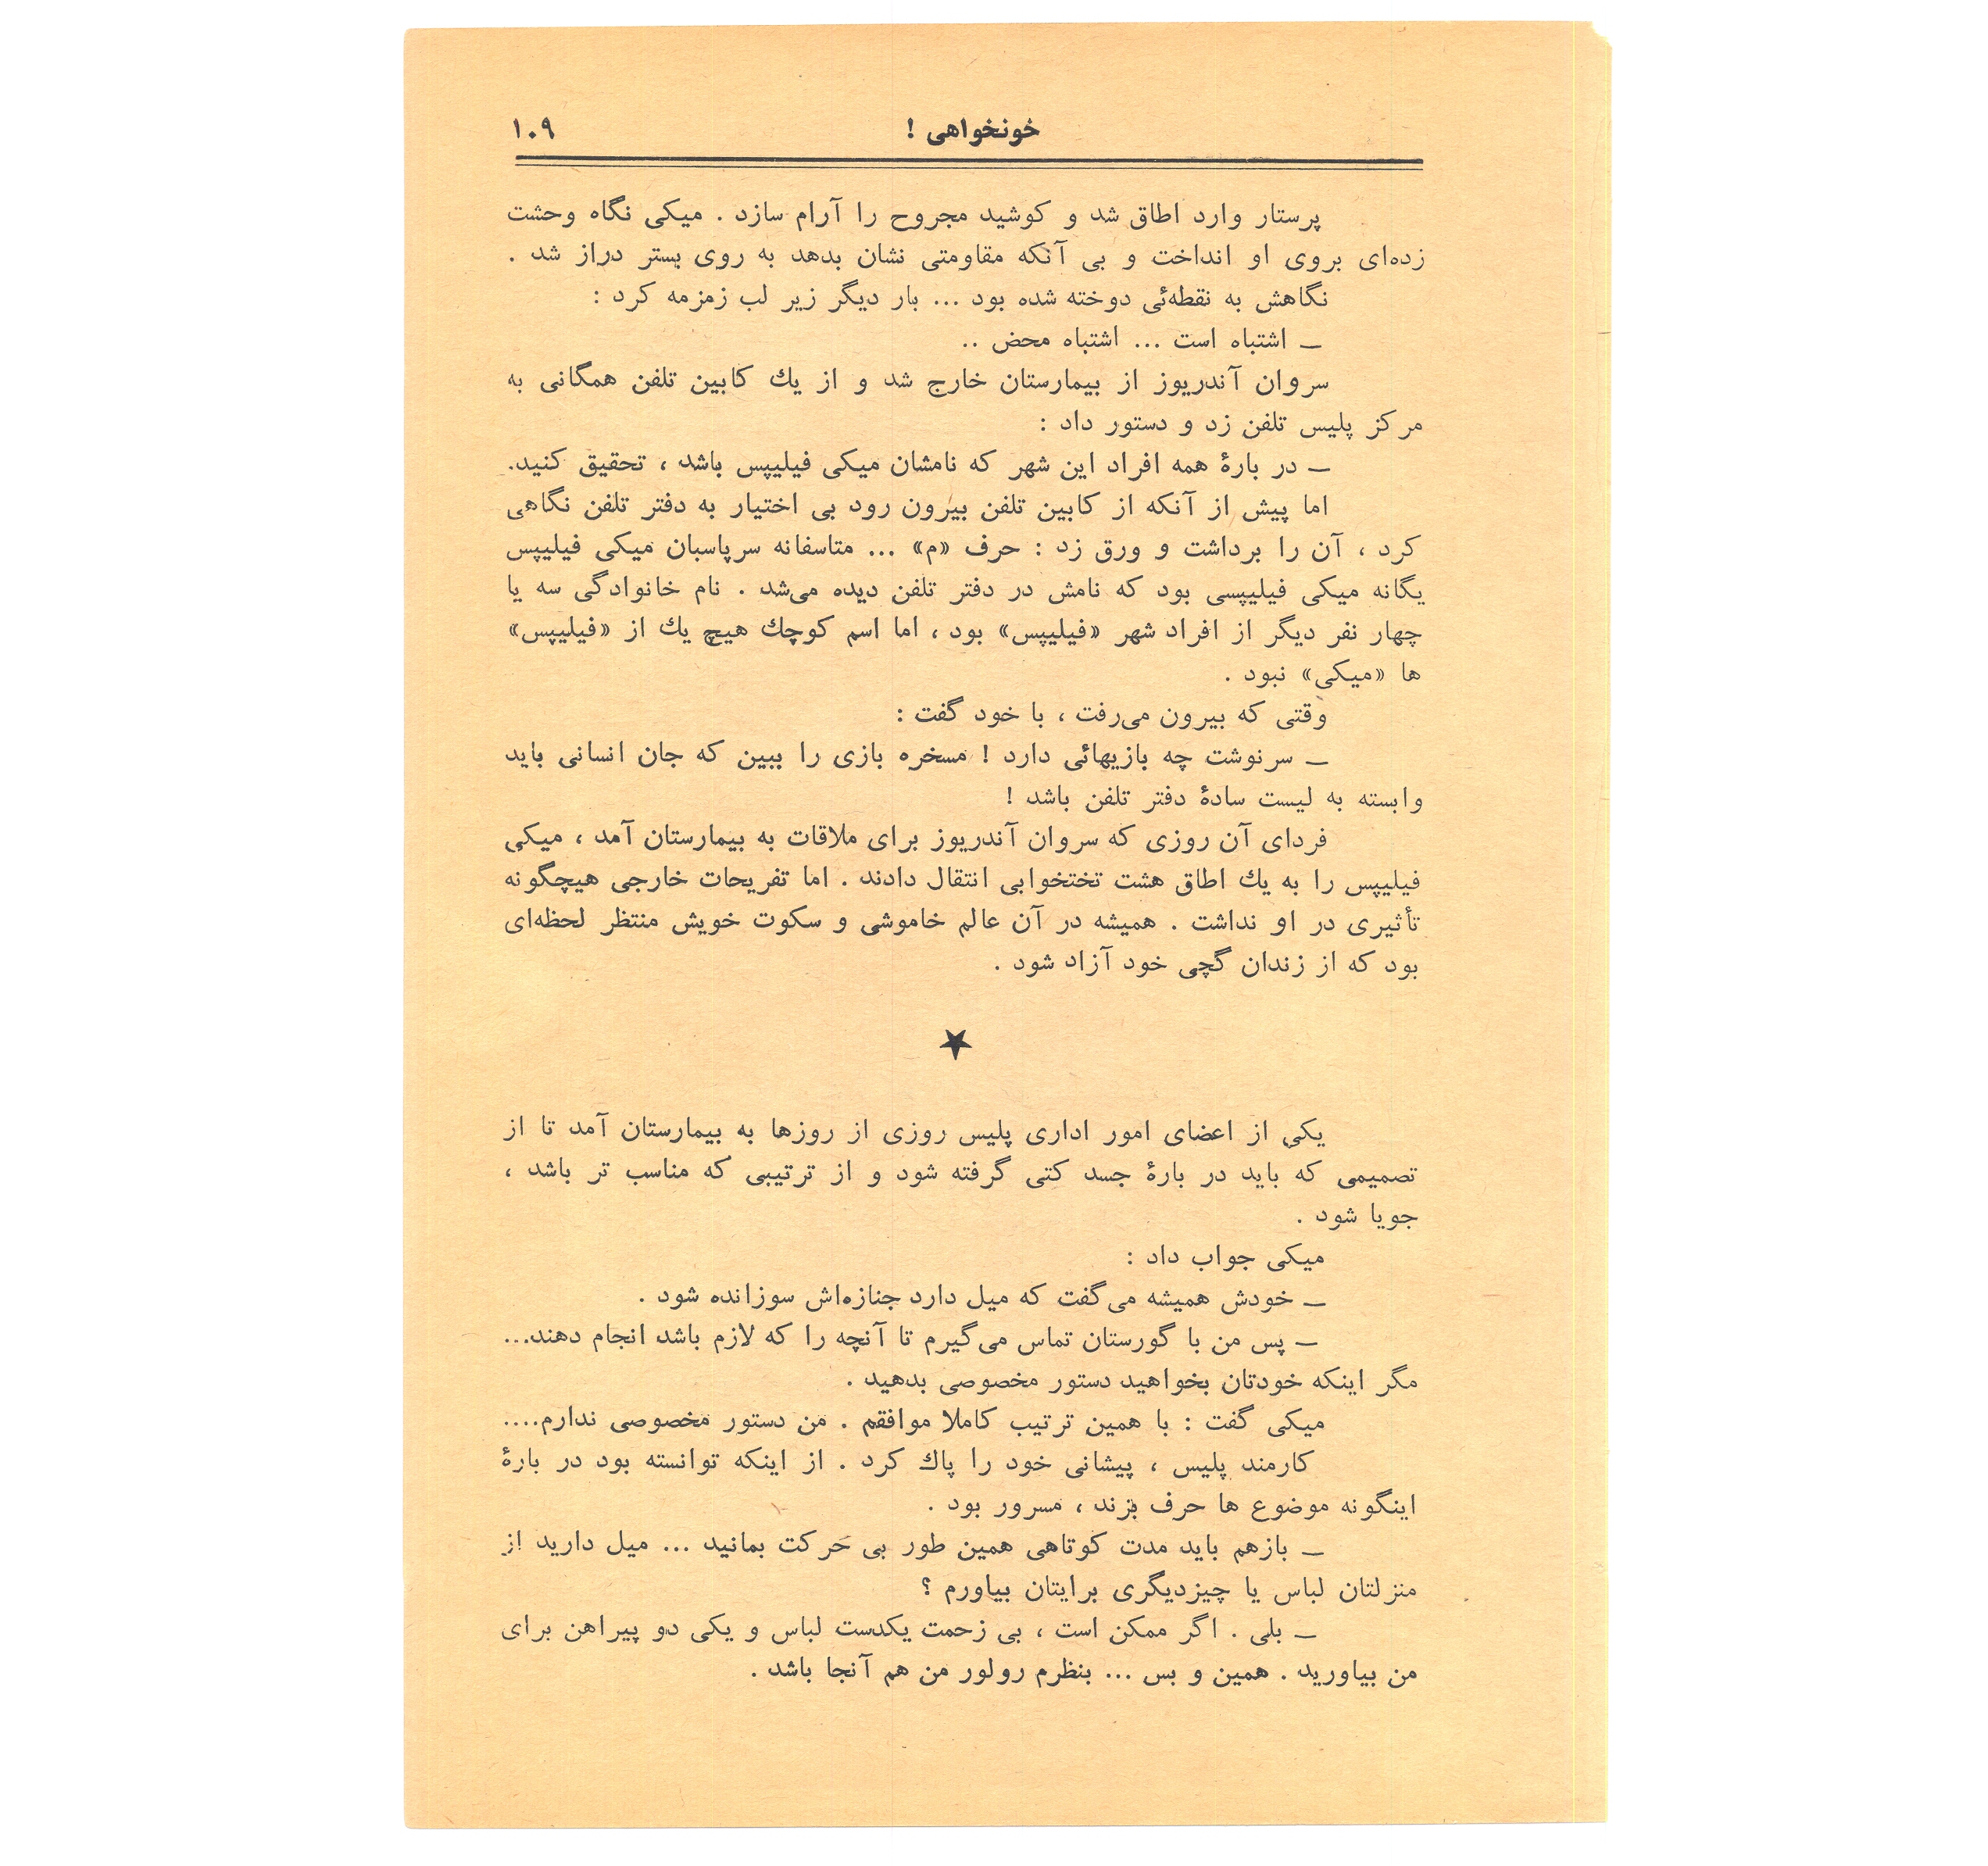 خونخواهی !
۱۰۹
پرستار وارد اطاق شد و کوشید مجروح را آرام سازد . میکی نگاه وحشت
زده‌ای بروی او انداخت و بی آنکه مقاومتی نشان بدهد به روی بستر دراز شد .
نگاهش به نقطه‌ئی دوخته شده بود ... بار دیگر زیر لب زمزمه کرد :
ـ اشتباه است ... اشتباه محض ..
سروان آندریوز از بیمارستان خارج شد و از یك کابین تلفن همگانی به
مرکز پلیس تلفن زد و دستور داد :
ـ در بارهٔ همه افراد این شهر که نامشان میکی فیلیپس باشد ، تحقیق کنید.
اما پیش از آنکه از کابین تلفن بیرون رود بی اختیار به دفتر تلفن نگاهی
کرد ، آن را برداشت و ورق زد : حرف «م» ... متاسفانه سرپاسبان میکی فیلیپس
یگانه میکی فیلیپسی بود که نامش در دفتر تلفن دیده می‌شد . نام خانوادگی سه یا
چهار نفر دیگر از افراد شهر «فیلیپس» بود ، اما اسم کوچك هیچ یك از «فیلیپس»
ها «میکی» نبود .
وقتی که بیرون می‌رفت ، با خود گفت :
ـ سرنوشت چه بازیهائی دارد ! مسخره بازی را ببین که جان انسانی باید
وابسته به لیست سادهٔ دفتر تلفن باشد !
فردای آن روزی که سروان آندریوز برای ملاقات به بیمارستان آمد ، میکی
فیلیپس را به یك اطاق هشت تختخوابی انتقال دادند . اما تفریحات خارجی هیچگونه
تأثیری در او نداشت . همیشه در آن عالم خاموشی و سکوت خویش منتظر لحظه‌ای
بود که از زندان گچی خود آزاد شود .
★
یکی از اعضای امور اداری پلیس روزی از روزها به بیمارستان آمد تا از
تصمیمی که باید در بارهٔ جسد کتی گرفته شود و از ترتیبی که مناسب تر باشد ،
جویا شود .
میکی جواب داد :
ـ خودش همیشه می‌گفت که میل دارد جنازه‌اش سوزانده شود .
ـ پس من با گورستان تماس می‌گیرم تا آنچه را که لازم باشد انجام دهند...
مگر اینکه خودتان بخواهید دستور مخصوصی بدهید .
میکی گفت : با همین ترتیب کاملا موافقم . من دستور مخصوصی ندارم....
کارمند پلیس ، پیشانی خود را پاك کرد . از اینکه توانسته بود در بارهٔ
اینگونه موضوع ها حرف بزند ، مسرور بود .
ـ بازهم باید مدت کوتاهی همین طور بی حرکت بمانید ... میل دارید از
منزلتان لباس یا چیزدیگری برایتان بیاورم ؟
ـ بلی . اگر ممکن است ، بی زحمت یکدست لباس و یکی دو پیراهن برای
من بیاورید . همین و بس ... بنظرم رولور من هم آنجا باشد .